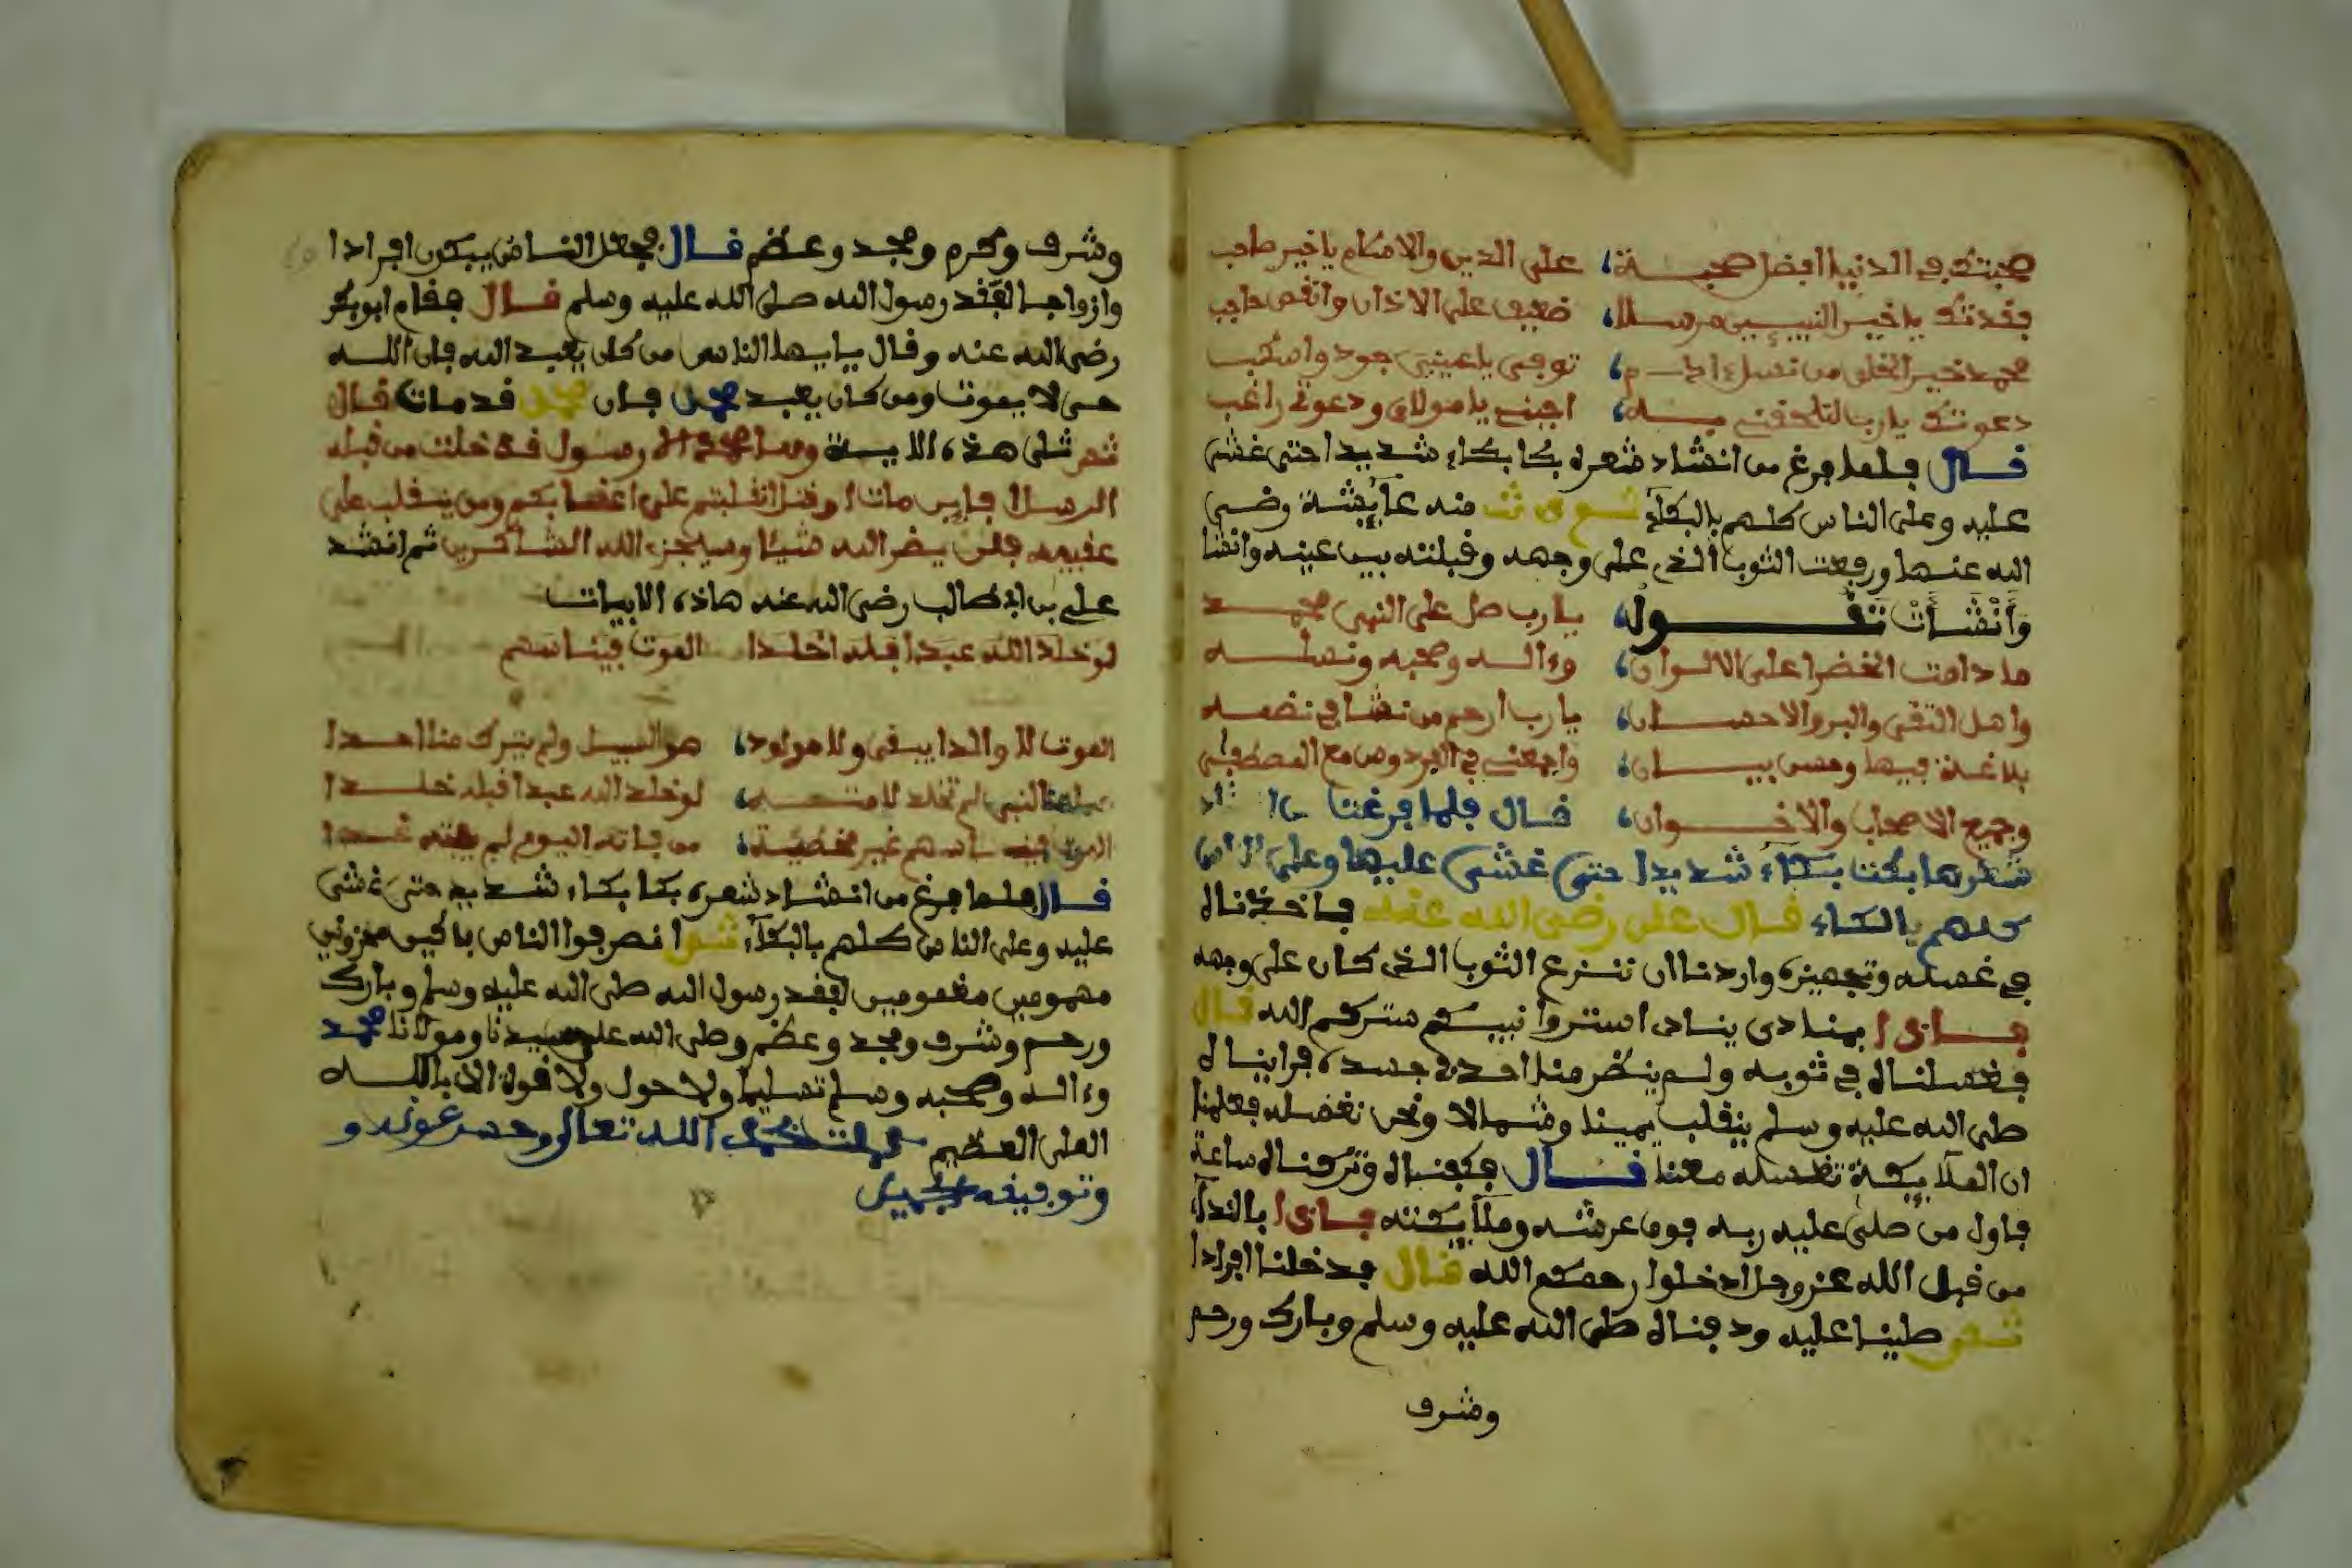 صحبتك في الدنيا افضل صحبة، على الدين والاسلام يا خير صاحب
فقدتك يا خير النبيين مرسلا، ضعيف على الاذان وانقص حاجب
محمد خير الخلق من نسل ءادم، توجعى يا عينى جود واسكب
دعوتك يارب لتلحقني به، اجبني يا مولاى ودعوتي راغب
قال فلما فرغ من انشاد شعره بكا بكاء شديدا حتى غشي
عليه وعلى الناس كلهم بالبكاء ثم دنت منه عايشة رضي
الله عنها ورفعت الثوب الذي على وجهه وقبلته بين عينه وانشا
وَأَنْشَأَتْ تقوله يا رب صل على النبي محمد
ما دامت الخضرا على الالوان، وءاله وصحبه ونسله
واهل التقى والبر والاحسان، يا رب ارحم من نشا في
بلاغة فيها وحسن بيان، واجمعني في الفردوس مع المصطفى
وجميع الاصحاب والاخوان، قال فلما فرغت من انشاد
شعرها بكت بكاء شديدا حتى غشي عليها وعلى الناس
كلهم بالبكاء قال على رضي الله عنه فاخذنال
في غسله وتجهيزه واردنا ان ننزع الثوب الذي كان على وجهه
فاذا بمنادى ينادى استروا نبيكم ستركم الله قال
فغسلنال في ثوبه ولم ينظر منا احد جسده فراينال
صلى الله عليه وسلم ينقلب يمينا وشمالا ونحن نغسله فعلمنا
ان الملايكة تغسله معنا قال فكفنال وتركنال ساعة
فاول من صلى عليه ربه فوق عرشه وملايكته فاذا بالنداء
من قبل الله عز وجل ادخلوا رحمكم الله قال فدخلنا افرادا
ثم صلينا عليه ودفنال صلى الله عليه وسلم وبارك ورحم
وشرف
وشرف وكرم ومجد وعظم قال فجعل الناس يبكون افرادا
وازواجا لفقد رسول الله صلى الله عليه وسلم قال فقام ابو بكر
رضي الله عنه وقال يايها الناس من كان يعبد الله فان الله
حي لا يموت ومن كان يعبد محمد فان محمد قد مات قال
ثم تلى هذه الاية وما محمد الا رسول قد خلت من قبله
الرسل افاين مات او قتل انقلبتم على اعقابكم ومن ينقلب على
عقبيه فلن يضر الله شيئا وسيجزي الله الشاكرين ثم انشد
علي بن ابي طالب رضي الله عنه هاذه الابيات
لو خلد الله عبدا قبله اخلدا الموت فينا سهم
الموت لا والدا يبقى ولا مولود، هو السبيل ولم يترك منا احدا
هذا النبي لم تخلد لامته، لو خلد الله عبدا قبله خلدا
الموت فينا سهم غير مخطية، من فاته اليوم لم يفته غدا
قال فلما فرغ من انشاد شعره بكا بكاء شديد حتى غشي
عليه وعلى الناس كلهم بالبكاء ثم انصرفوا الناس باكين محزونين
مهمومين مغمومين لفقد رسول الله صلى الله عليه وسلم وبارك
ورحم وشرف ومجد وعظم وصلى الله على سيدنا ومولانا محمد
وءاله وصحبه وسلم تسليما ولا حول ولا قوة الا بالله
العلى العظيم كملت بحمد الله تعالى وحسن عونه و
وتوفيقه الجميل